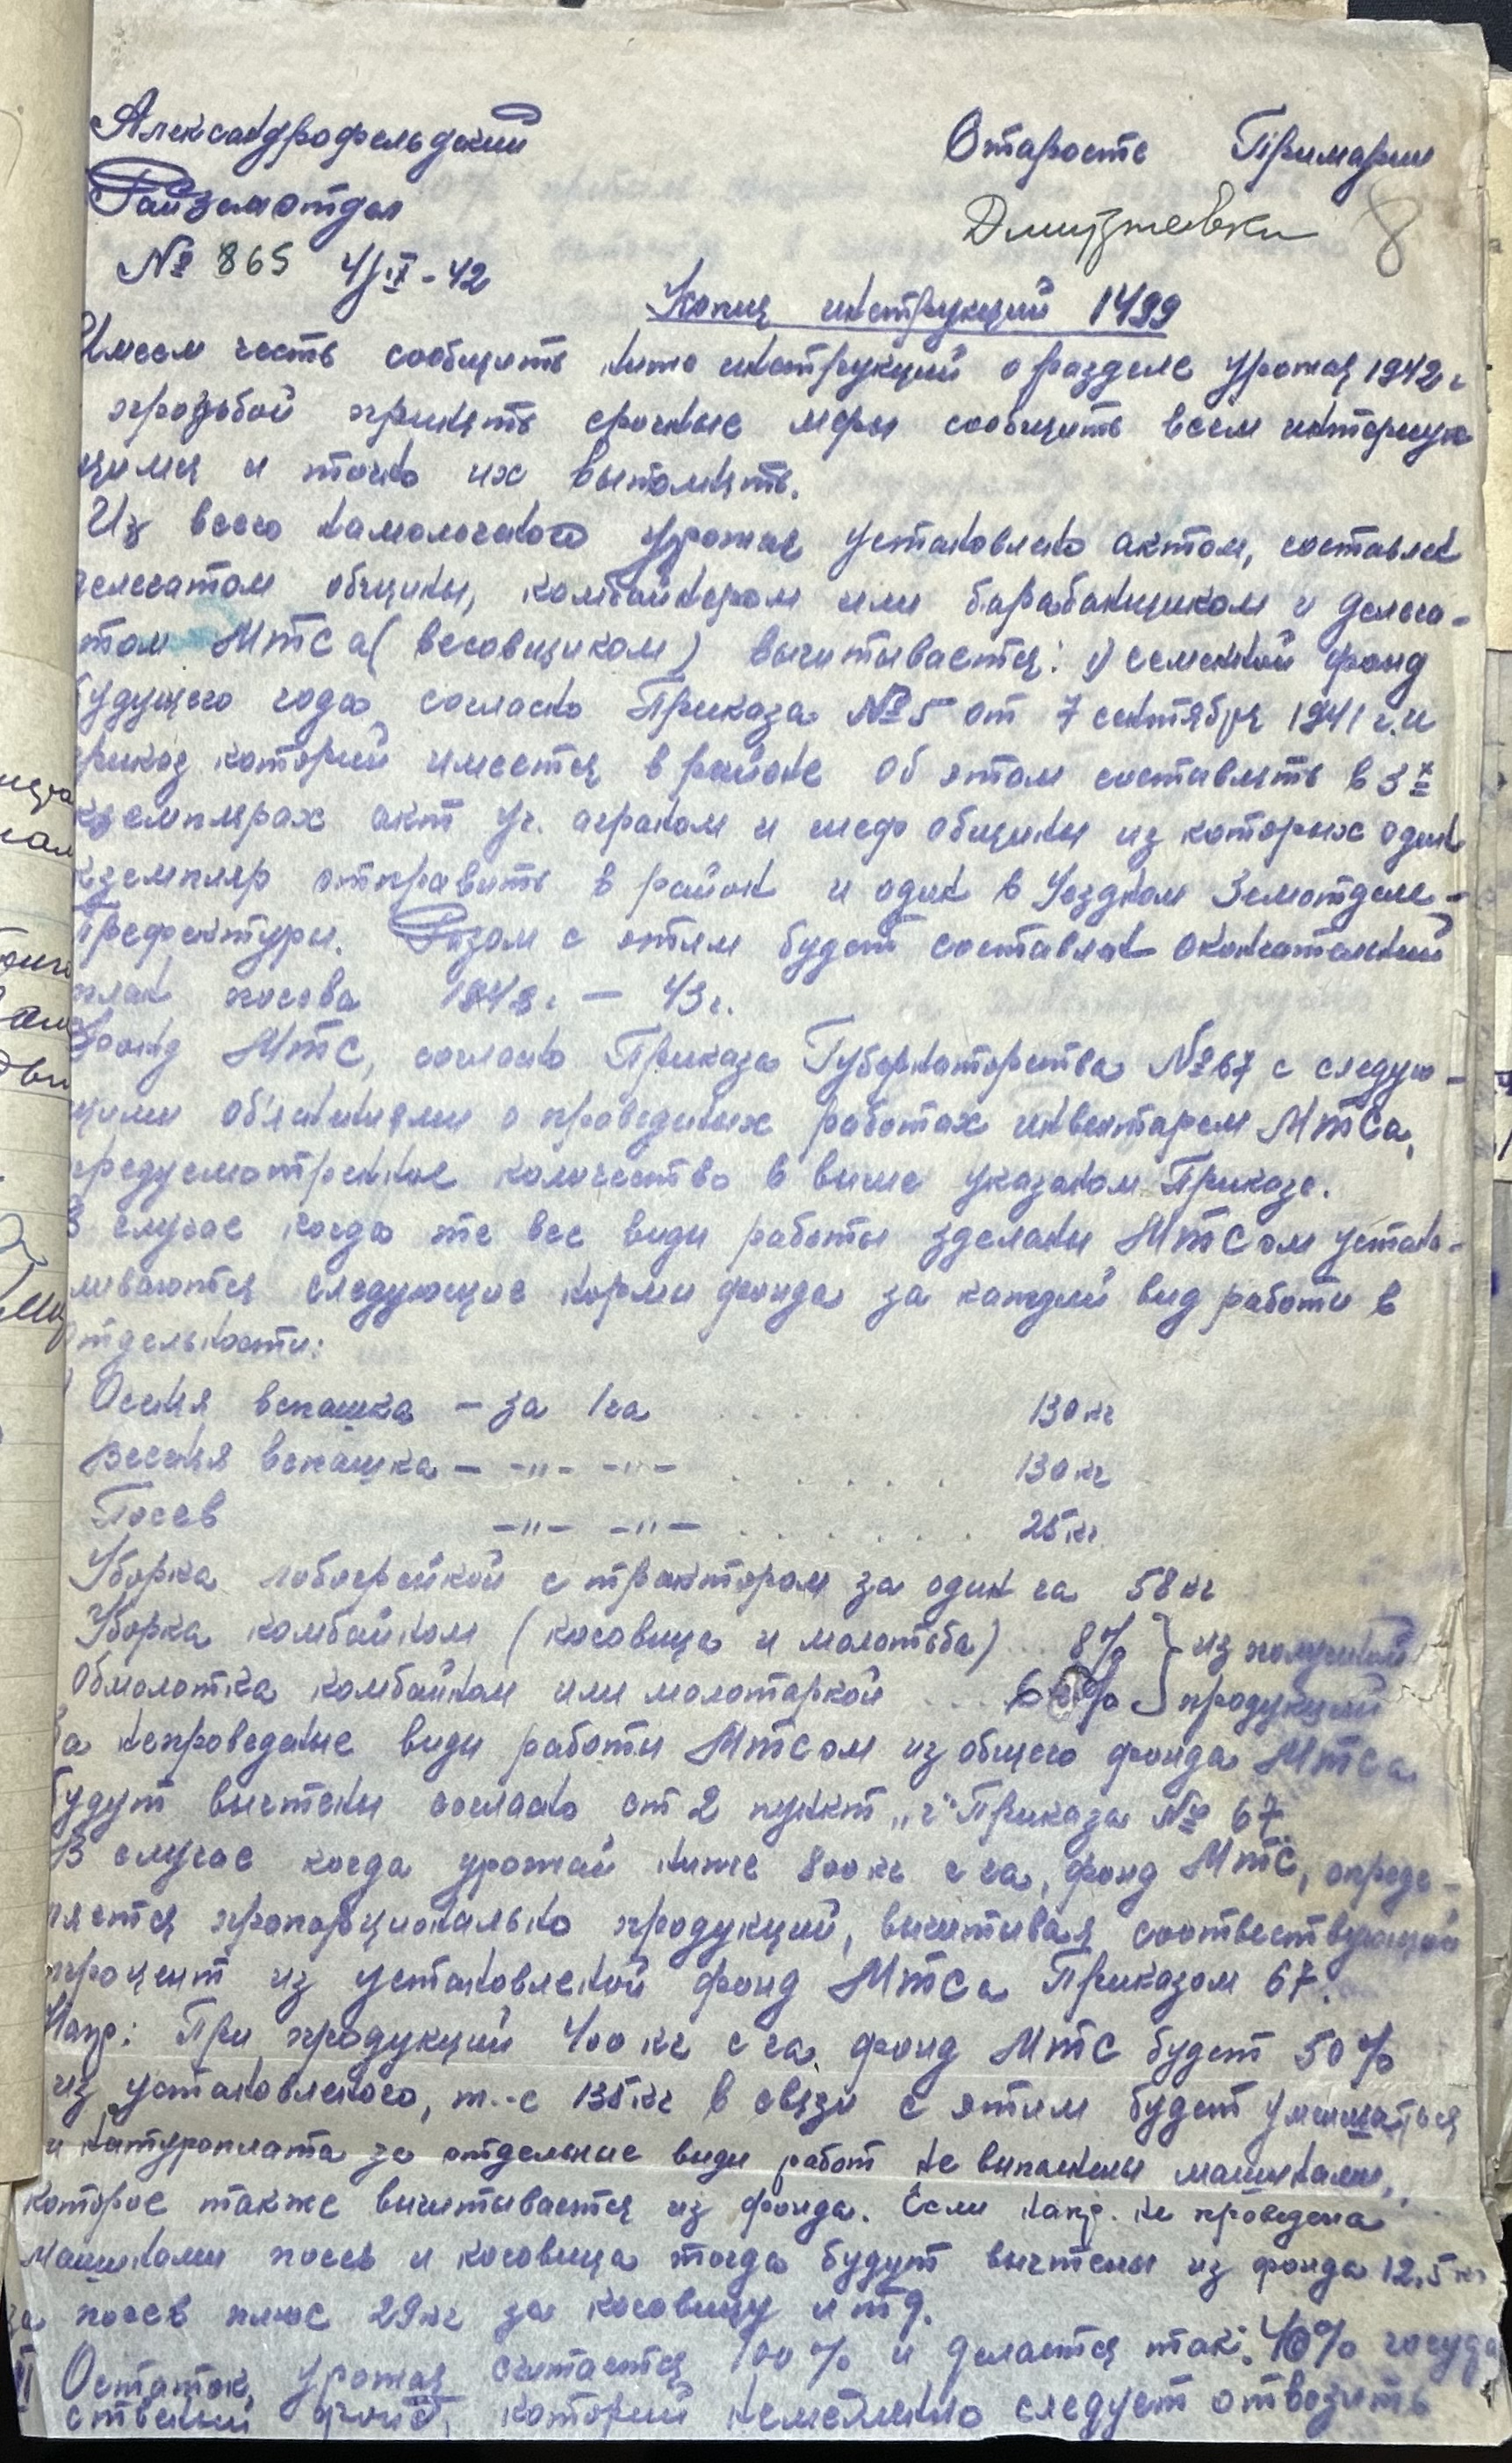 Александрофельдский
Райземотдел
№ 865 4/IX-42
Старосте Примарии
Дмитриевки 8
Копия инструкций 1499
Имеем честь сообщить ниже инструкций о разделе урожая 1942 г
прозьбой принять срочные меры сообщить всем интерную
щимся и точно их выполнять.
Из всего намолоченого урожая установлено актом, составлен
делегатом общины, комбайнером или барабанщиком и делега-
том МТСа (весовщиком) вычитывается: 1) семеной фонд
будущего года, согласно Приказа № 5 от 7 сентября 1941 г. и
приказ который имеется в районе Об этом составить в 3х
кземплярах акт уч. агроном и шеф общины из которых один
кземпляр отправить в район и один в Уездном Земотделе-
Префектуры. Разом с этим будет составлен окончательный
план посева 1942 г. — 43 г.
Фонд МТС, согласно Приказа Губернаторства № 67 с следую-
щими обяснениями о проведеных работах инвентарем МТСа,
предусмотренное количество в выше указаном Приказе.
В случае когда не все виды работы зделаны МТСом устано-
вливаются следующие нормы фонда за каждый вид работы в
отдельности:
Осеняя вспашка — за 1 га . . . . . 130 кг
Весеняя вспашка — -"- -"- . . . . . . 130 кг
Посев -"- -"- . . . . . . . 25 кг
Уборка лобогрейкой с трактором за один га 58 кг
Уборка комбайном (косовица и молотьба) . . 8% } из получений
Обмолотка комбайном или молотаркой . . . 6% } продукций
За непроведеные виды работы МТСом из общего фонда МТСа
будут вычтены согласно ст 2 пункт „г" Приказа № 67.
В случае когда урожай ниже 800 кг с га, фонд МТС, опреде-
ляется пропорционально продукций, вычитывая соотвествующий
процент из установленой фонд МТСа Приказом 67.
Напр: При продукций 400 кг с га фонд МТС будет 50%
из установленого, т.-е 135 кг в связи с этим будет уменшаться
и натуроплата за отдельные виды работ не выполнены машинами,
которое также вычитывается из фонда. Если напр. не проведена
машинами посев и косовица тогда будут вычтены из фонда 12,5 кг
за посев плюс 29 кг за косовицу и тд.
II Остаток урожая считается 100% и делается так: 40% госуда
ственый фонд, который немедленно следует отвозить